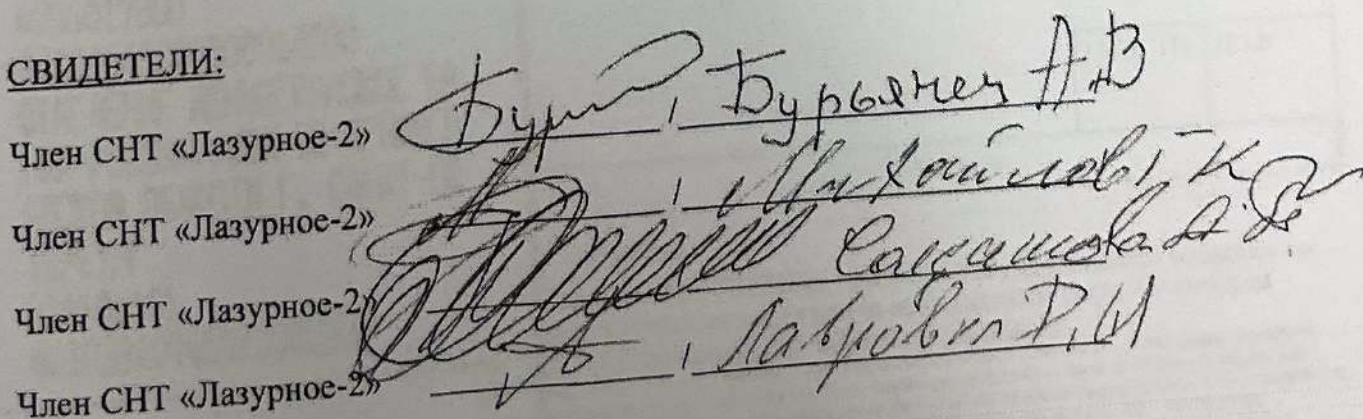 СВИДЕТЕЛИ:
Член СНТ «Лазурное-2» , Бурьянец А.В
Член СНТ «Лазурное-2» , Михайлов Т К
Член СНТ «Лазурное-2»
Член СНТ «Лазурное-2» , Д,И